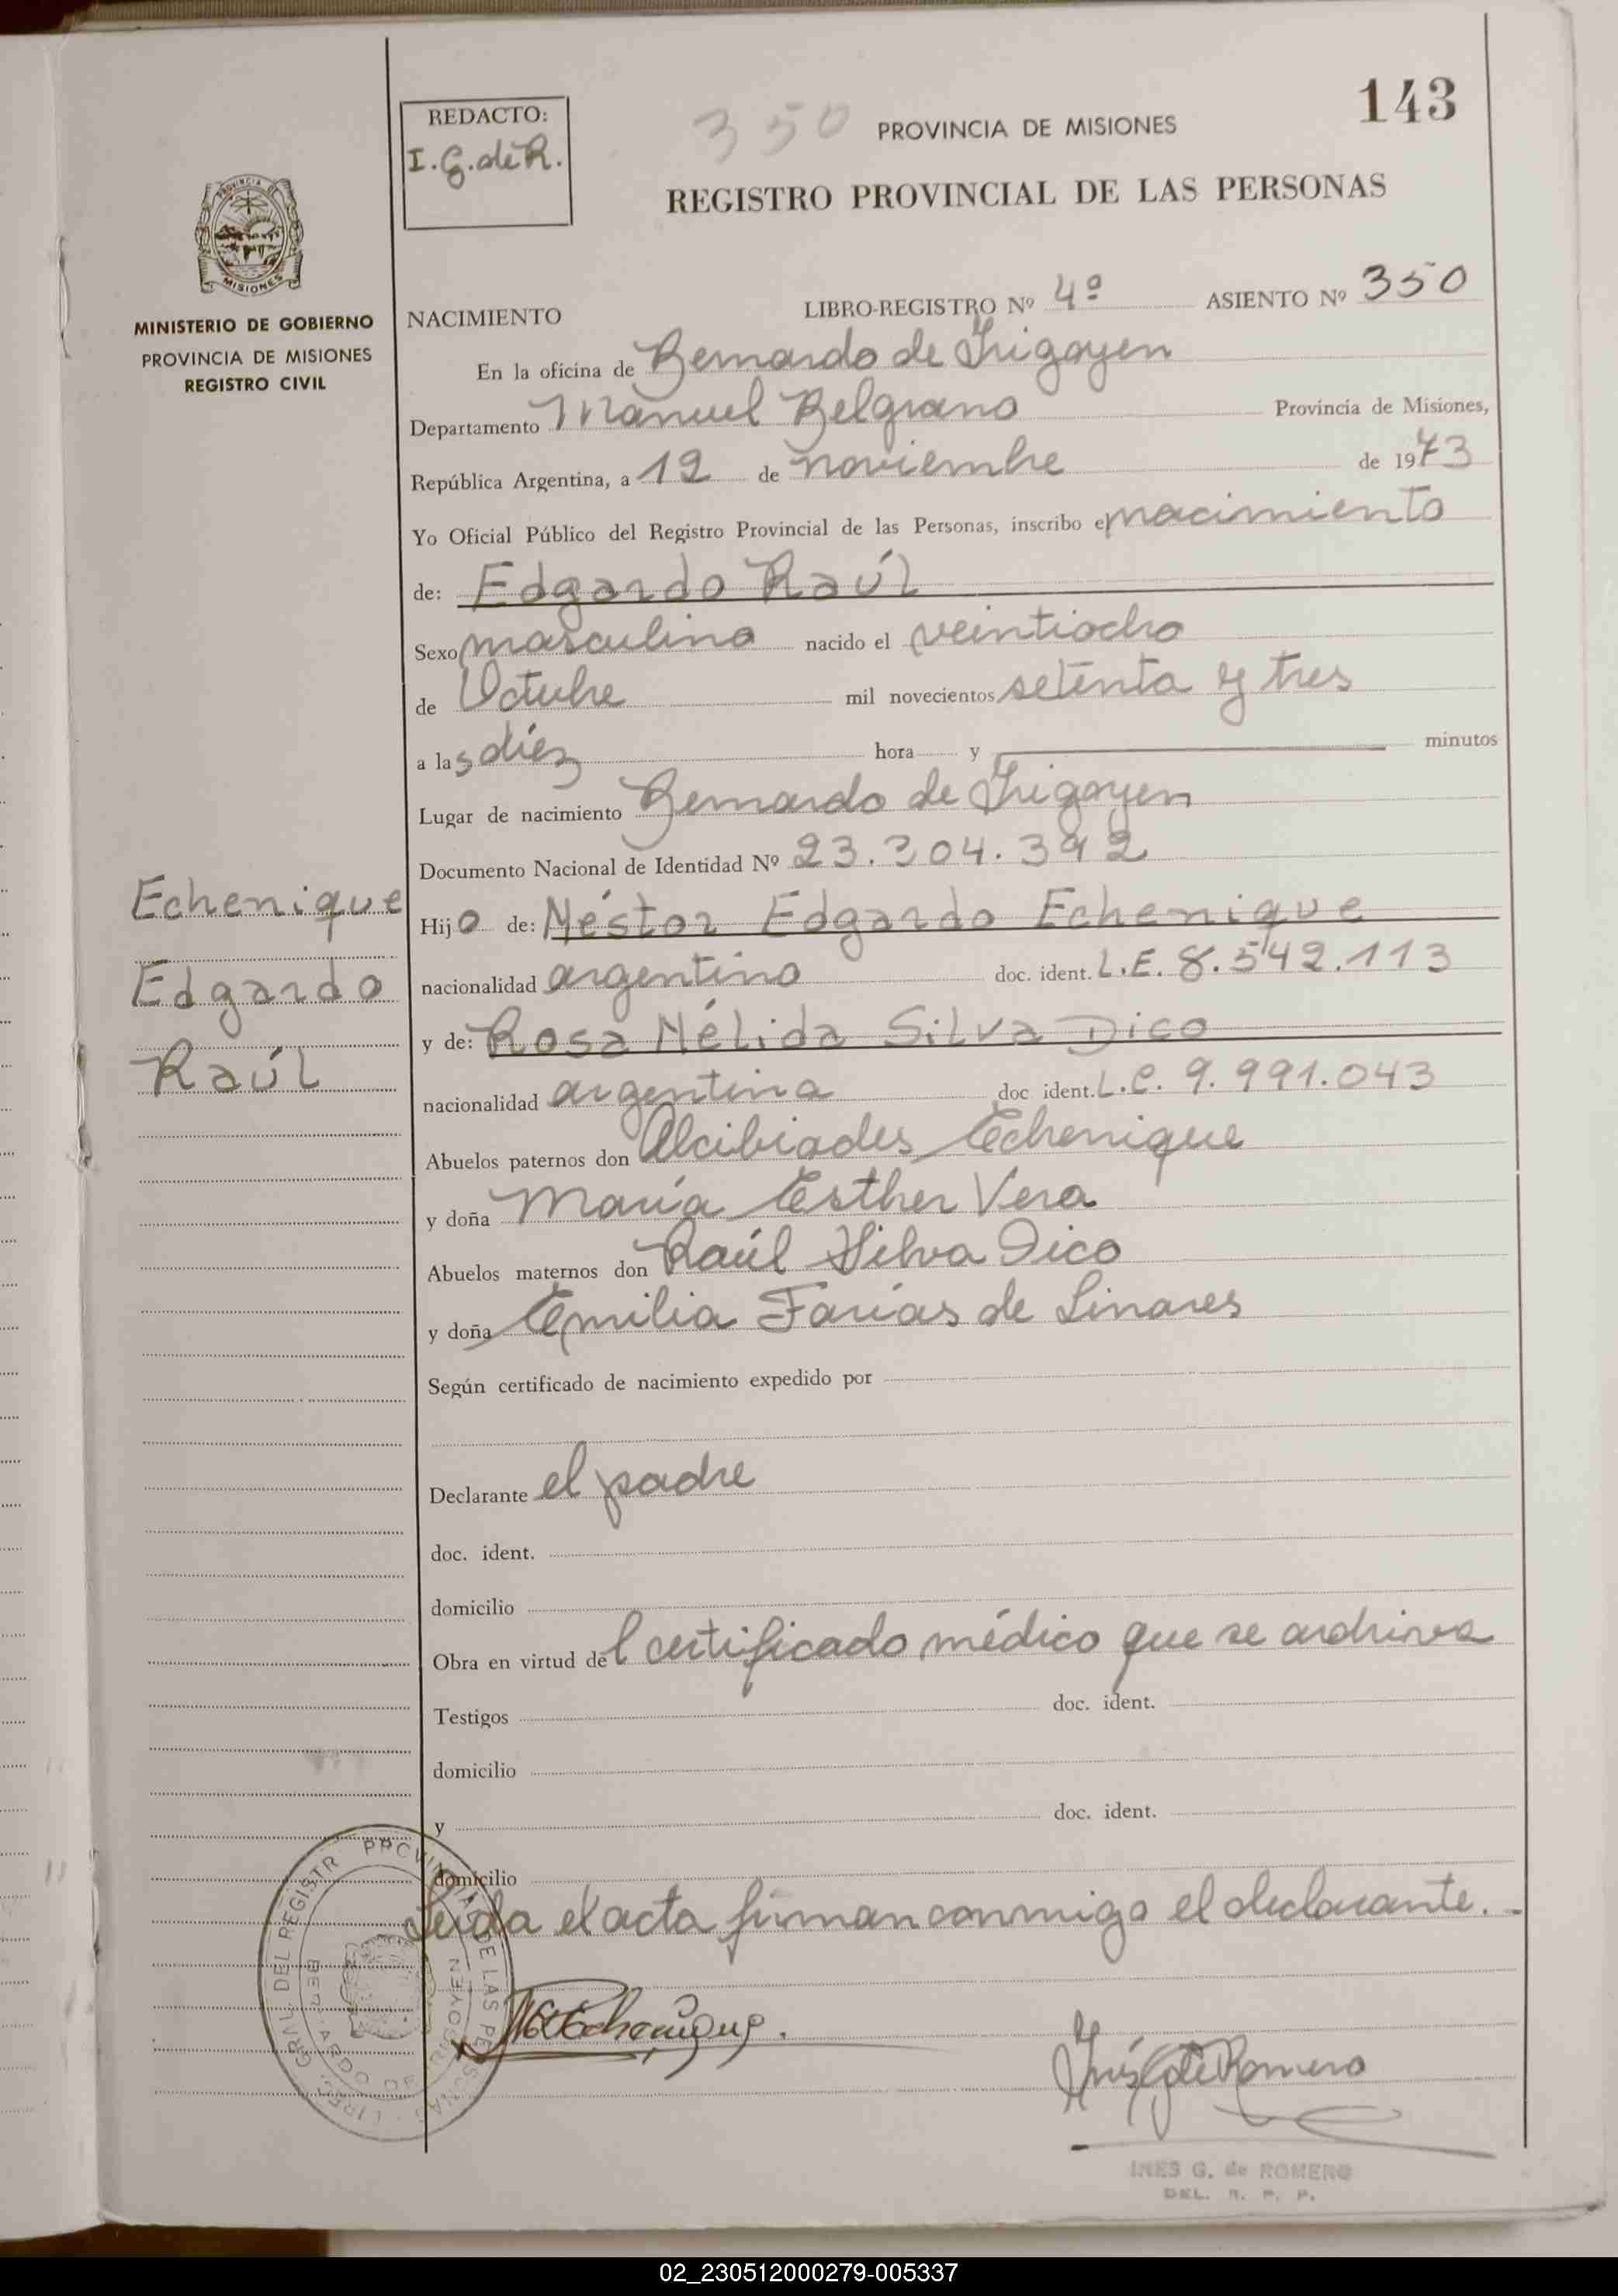 143
REDACTO:
I. G. de R.
350
PROVINCIA DE MISIONES
REGISTRO PROVINCIAL DE LAS PERSONAS
PROVINCIA DE
MISIONES
MINISTERIO DE GOBIERNO
PROVINCIA DE MISIONES
REGISTRO CIVIL
NACIMIENTO LIBRO-REGISTRO Nº 4º ASIENTO Nº 350
En la oficina de Bernardo de Irigoyen
Departamento Manuel Belgrano Provincia de Misiones,
República Argentina, a 12 de noviembre de 1973
Yo Oficial Público del Registro Provincial de las Personas, inscribo el nacimiento
de: Edgardo Raúl
Sexo masculino nacido el veintiocho
de Octubre mil novecientos setenta y tres
a las diez hora y minutos
Lugar de nacimiento Bernardo de Irigoyen
Documento Nacional de Identidad Nº 23.304.392
Echenique
Edgardo
Raúl
Hijo de: Néstor Edgardo Echenique
nacionalidad argentino doc. ident. L.E. 8.542.113
y de: Rosa Nélida Silva Dico
nacionalidad argentina doc ident. L.C. 9.991.043
Abuelos paternos don Alcibiades Echenique
y doña María Esther Vera
Abuelos maternos don Raúl Silva Dico
y doña Emilia Farías de Linares
Según certificado de nacimiento expedido por
Declarante el padre
doc. ident.
domicilio
Obra en virtud del certificado médico que se archiva
Testigos doc. ident.
domicilio
y doc. ident.
domicilio
Leída el acta firman conmigo el declarante.-
Echenique.
Inés G de Romero
INES G. de ROMERO
DEL. R. P. P.
02_230512000279-005337